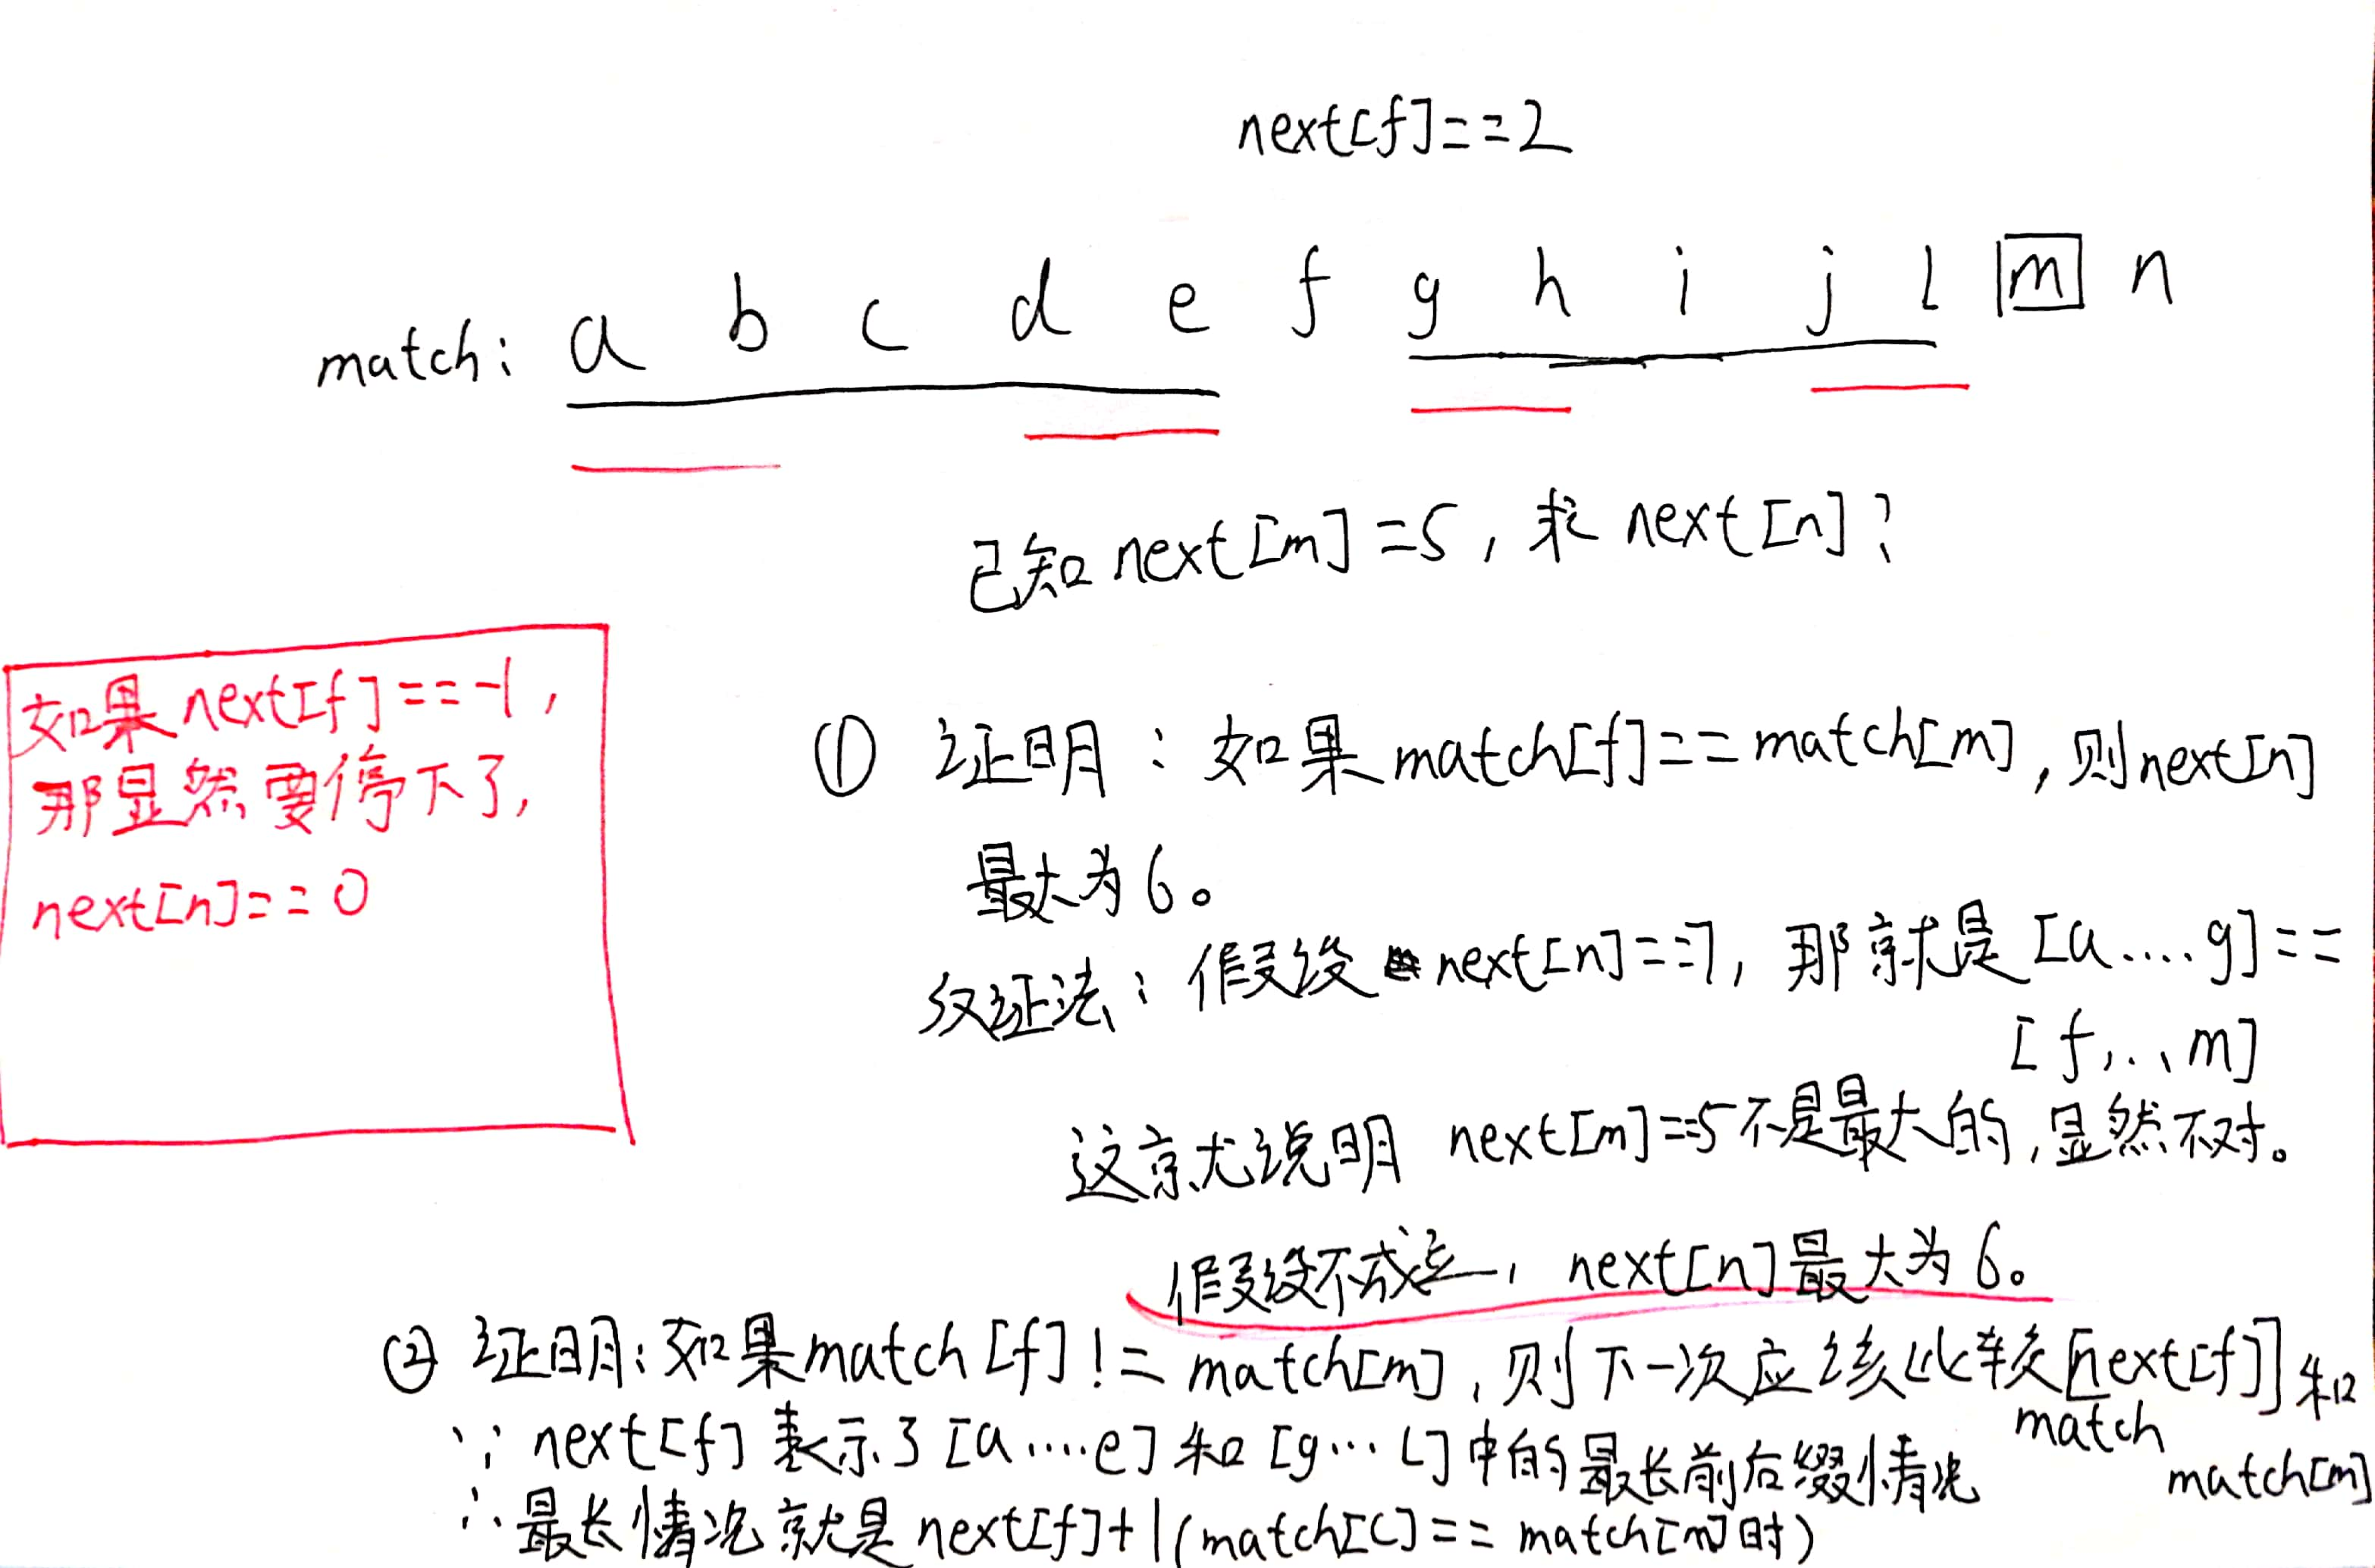 next[f]==2
match: a b c d e f g h i j l m n
已知next[m]=5,求next[n]?
如果next[f]==-1,
那显然要停下了,
next[n]==0
① 证明:如果match[f]==match[m],则next[n]
最大为6。
反证法:假设next[n]==7,那就是[a....g]==
[f...m]
这就说明 next[m]==5不是最大的,显然不对。
假设不成立,next[n]最大为6。
② 证明:如果match[f]!=match[m],则下一次应该比较[next[f]]和
match
match[m]
∵ next[f]表示了[a....e]和[g...l]中的最长前后缀情况
∴ 最长情况就是next[f]+1(match[c]==match[m]时)